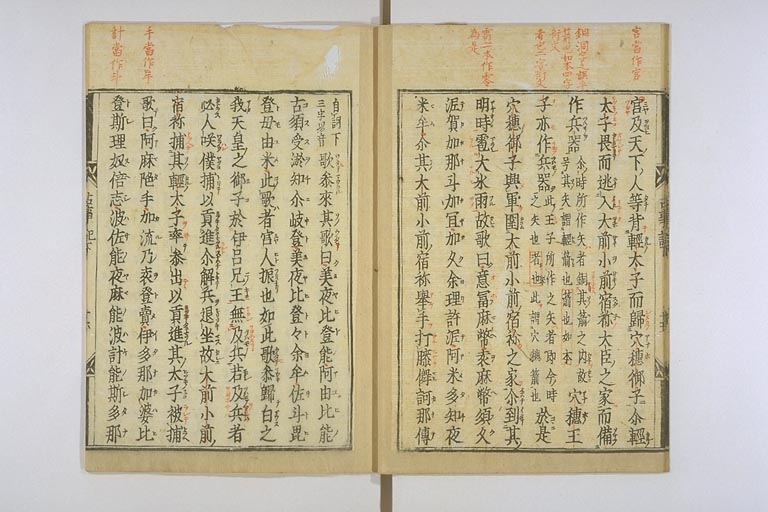 言當作官
雹一本作零
為是
官及天下人等背輕太子而歸穴穗御子尒輕
太子畏而逃入大前小前宿祢大臣之家而備
作兵器尒時所作矢者銅其箭之内故号其矢謂輕箭也箭也如本穴穗王
子亦作兵器此王子所作之矢者即今時之矢也者也此謂穴穗箭也於是
穴穗御子興軍圍大前小前宿祢之家尒到其
明時雹大氷雨故歌曰意冨麻幣袁麻幣須久
泥賀加那斗加冝加久余理許泥阿米多知夜
米牟尒其大前小前宿祢舉手打膝儛訶那傳
手當作牟
計當作斗
自訶下三字以音歌參來其歌曰美夜比登能阿由比能
古須受淤知尒岐登美夜比登々余牟佐斗毘
登毋由米此歌者宮人振也如此歌參歸白之
我天皇之御子於伊呂兄王無及兵若及兵者
必人咲僕捕以貢進尒解兵退坐故大前小前
宿祢捕其輕太子率參出以貢進其太子被捕
歌曰阿麻陁手加流乃袁登賣伊多那加婆比
登斯理奴倍志波佐能夜麻能波計能斯多那